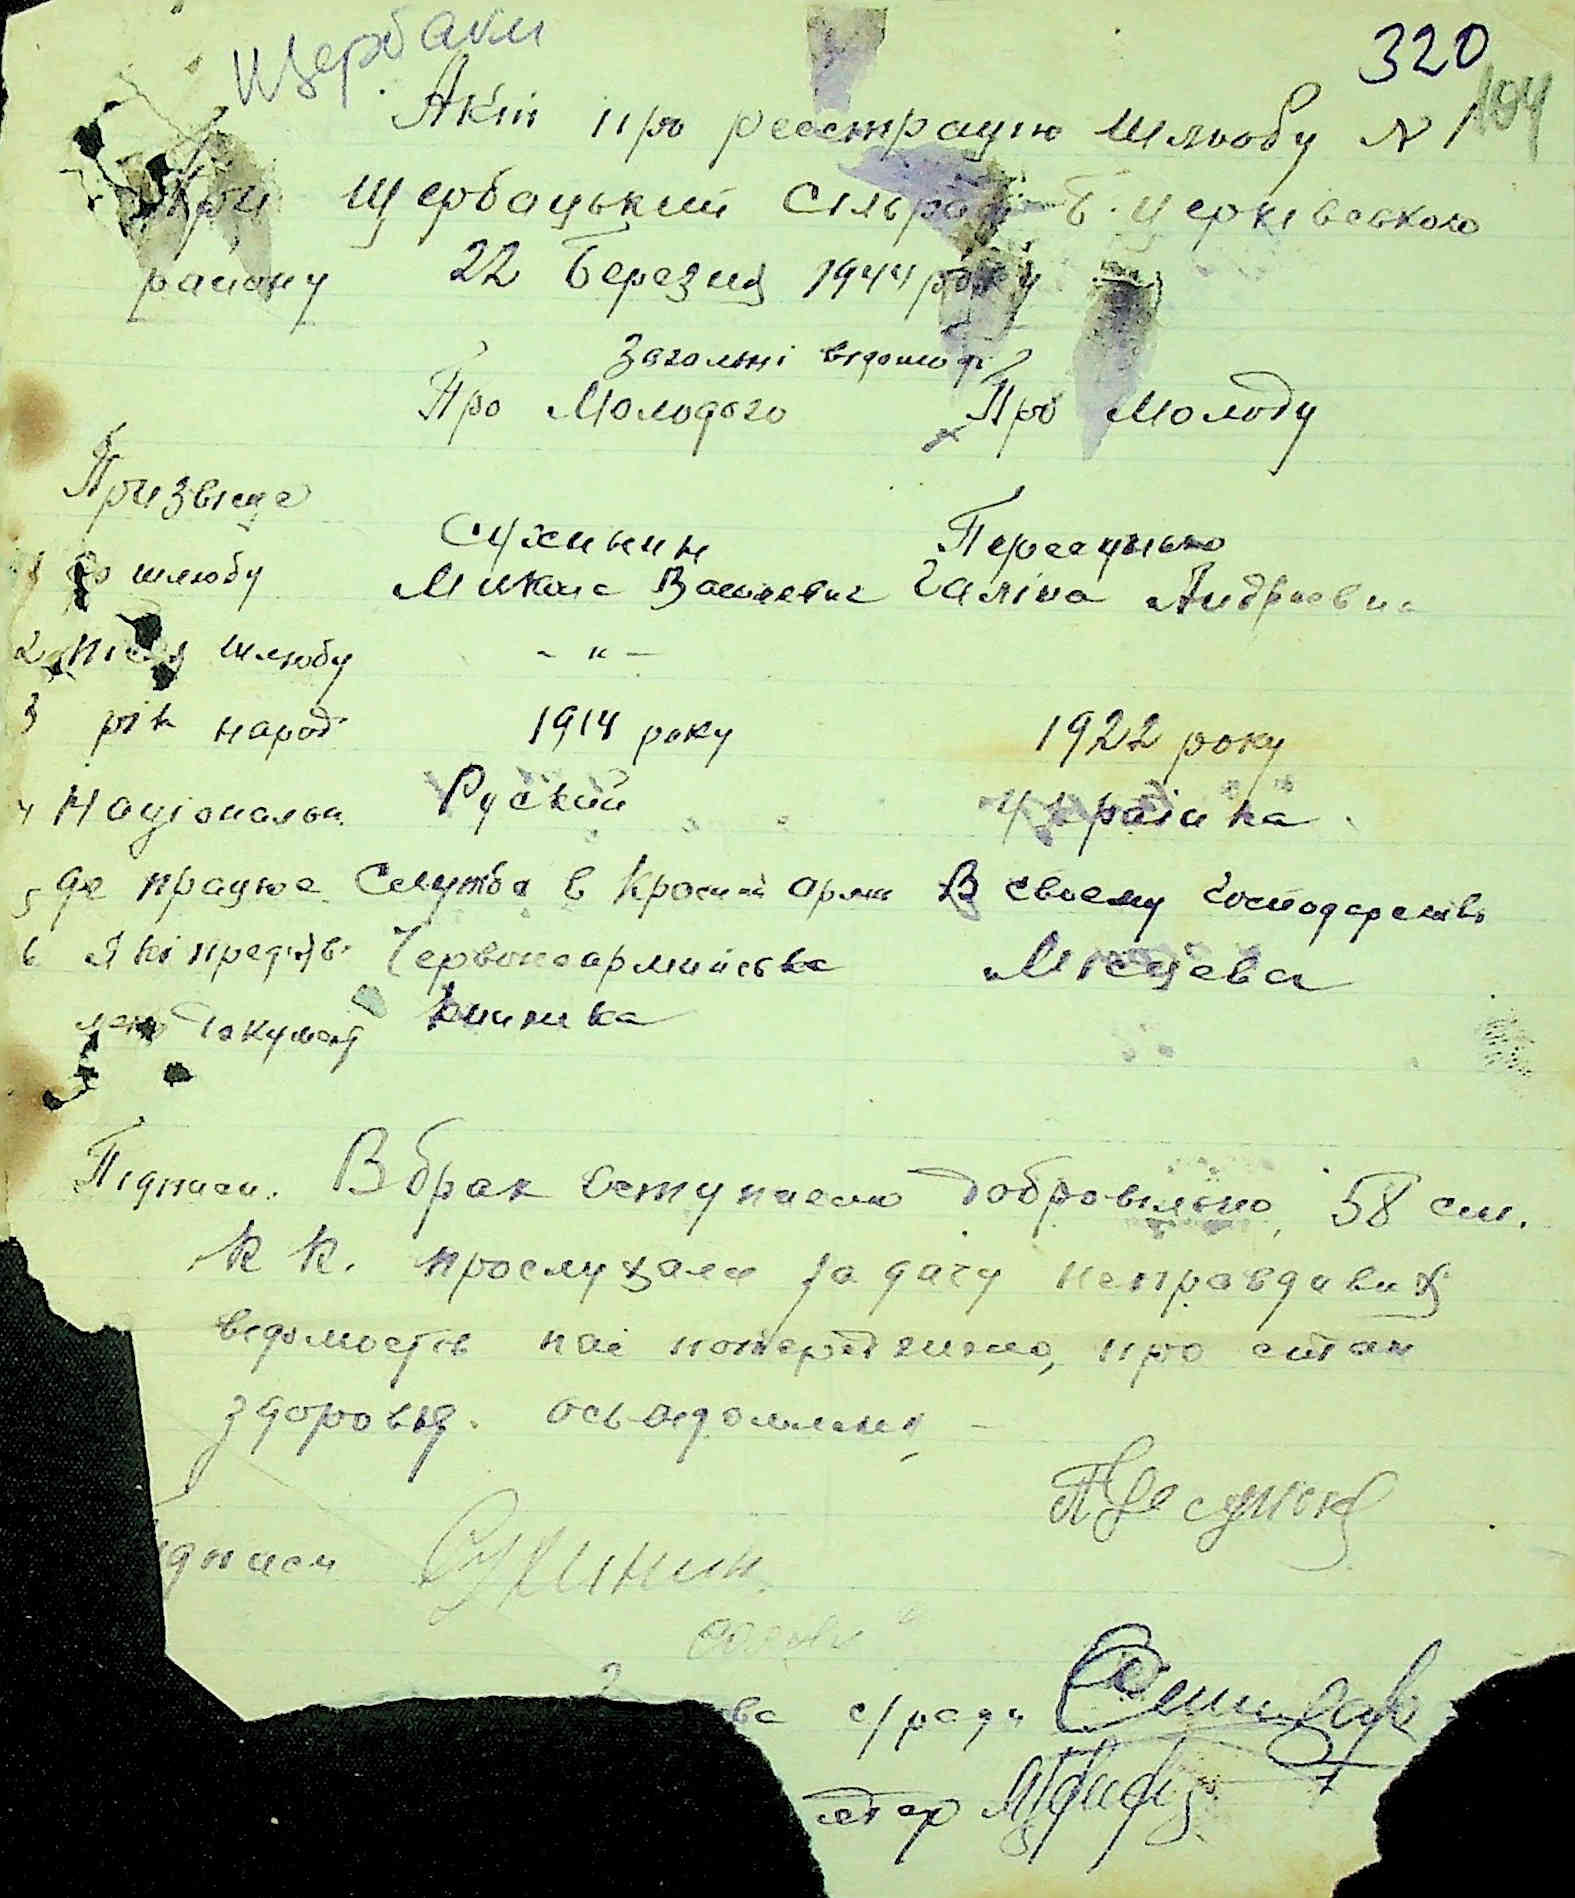 Щербаки
320
104
Акт про реєстрацію шлюбу N 1
При Щербацький сільраді Б. Церківського
району 22 Березня 1944 року
Загальні відомості
Про Молодого Про Молоду
Призвіще
Сухинин Пересунько
1 до шлюбу Микола Васильевич Галіна Андріевна
2 після шлюбу - " -
3 рік народ 1914 року 1922 року
4 Національн. Руский Українка
5 де працює Служба в Красній армії В своему господарстві
6 Які предяв Червоноармійська Місцева
лено документ книжка
Підписи. В брак вступаємо добровільно, 58 ст.
К К. прослухали за дачу неправдивих
відомостів нас попереджено, про стан
здоровья. осьведомлені
Пересунько
ідписи Сухинин
ва с/ради